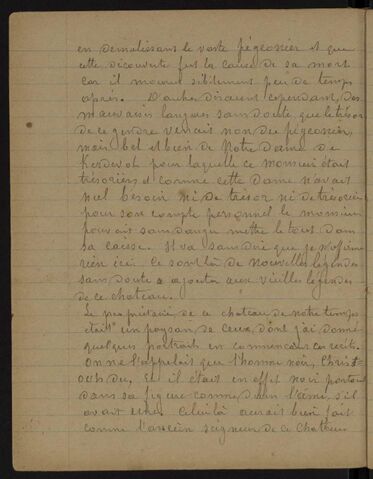 en démolissant le vaste pigeonier et que
cette découverte fut la cause de sa mort
car il mourut subitement peu de temps
après. D'autres disaient cependant, des
mauvaises langues sans doute, que le trésor
de ce gendre venait non du pigeonier,
mais bel et bien de Notre Dame de
Kerdevot pour laquelle ce monsieur était
trésorier et comme cette Dame n'avait
nul besoin ni de trésor ni de trésorier
pour son compte personnel le monsieur
pouvait sans danger mettre le tout dans
sa caisse. Il va sans dire que je n'affirme
rien ici. Ce sont là de nouvelles légendes
sans doute a ajouter aux vieilles légendes
de ce chateau.
Le propriétaire de ce chateau de notre temps
était un paysan de ceux dont j'ai donné
quelques portraits en commençant ces récits.
On ne l'appelait que l'homme noir,
du, et il était en effet noir partout
dans sa figure comme dans l'âme, s'il
avait une. Celui là aurait bien fait
comme l'ancien seigneur de ce Chateau